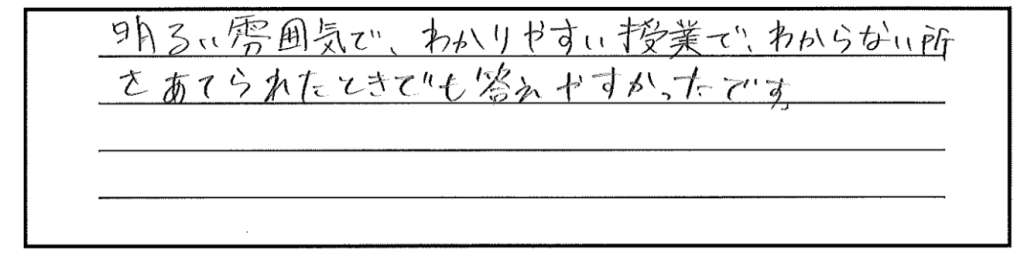 明るい雰囲気で、わかりやすい授業で、わからない所
をあてられたときでも答えやすかったです。